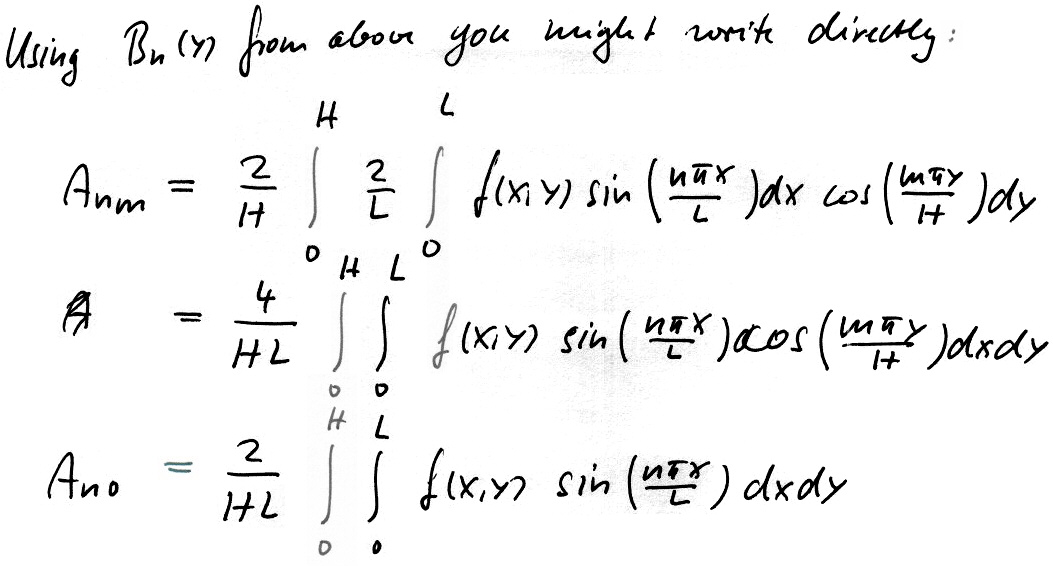 Using Bn(y) from above you might write directly:
Anm = 2/H ∫₀ᴴ 2/L ∫₀ᴸ f(x,y) sin(nπx/L)dx cos(mπy/H)dy
= 4/HL ∫₀ᴴ ∫₀ᴸ f(x,y) sin(nπx/L)cos(mπy/H)dxdy
Ano = 2/HL ∫₀ᴴ ∫₀ᴸ f(x,y) sin(nπx/L) dxdy